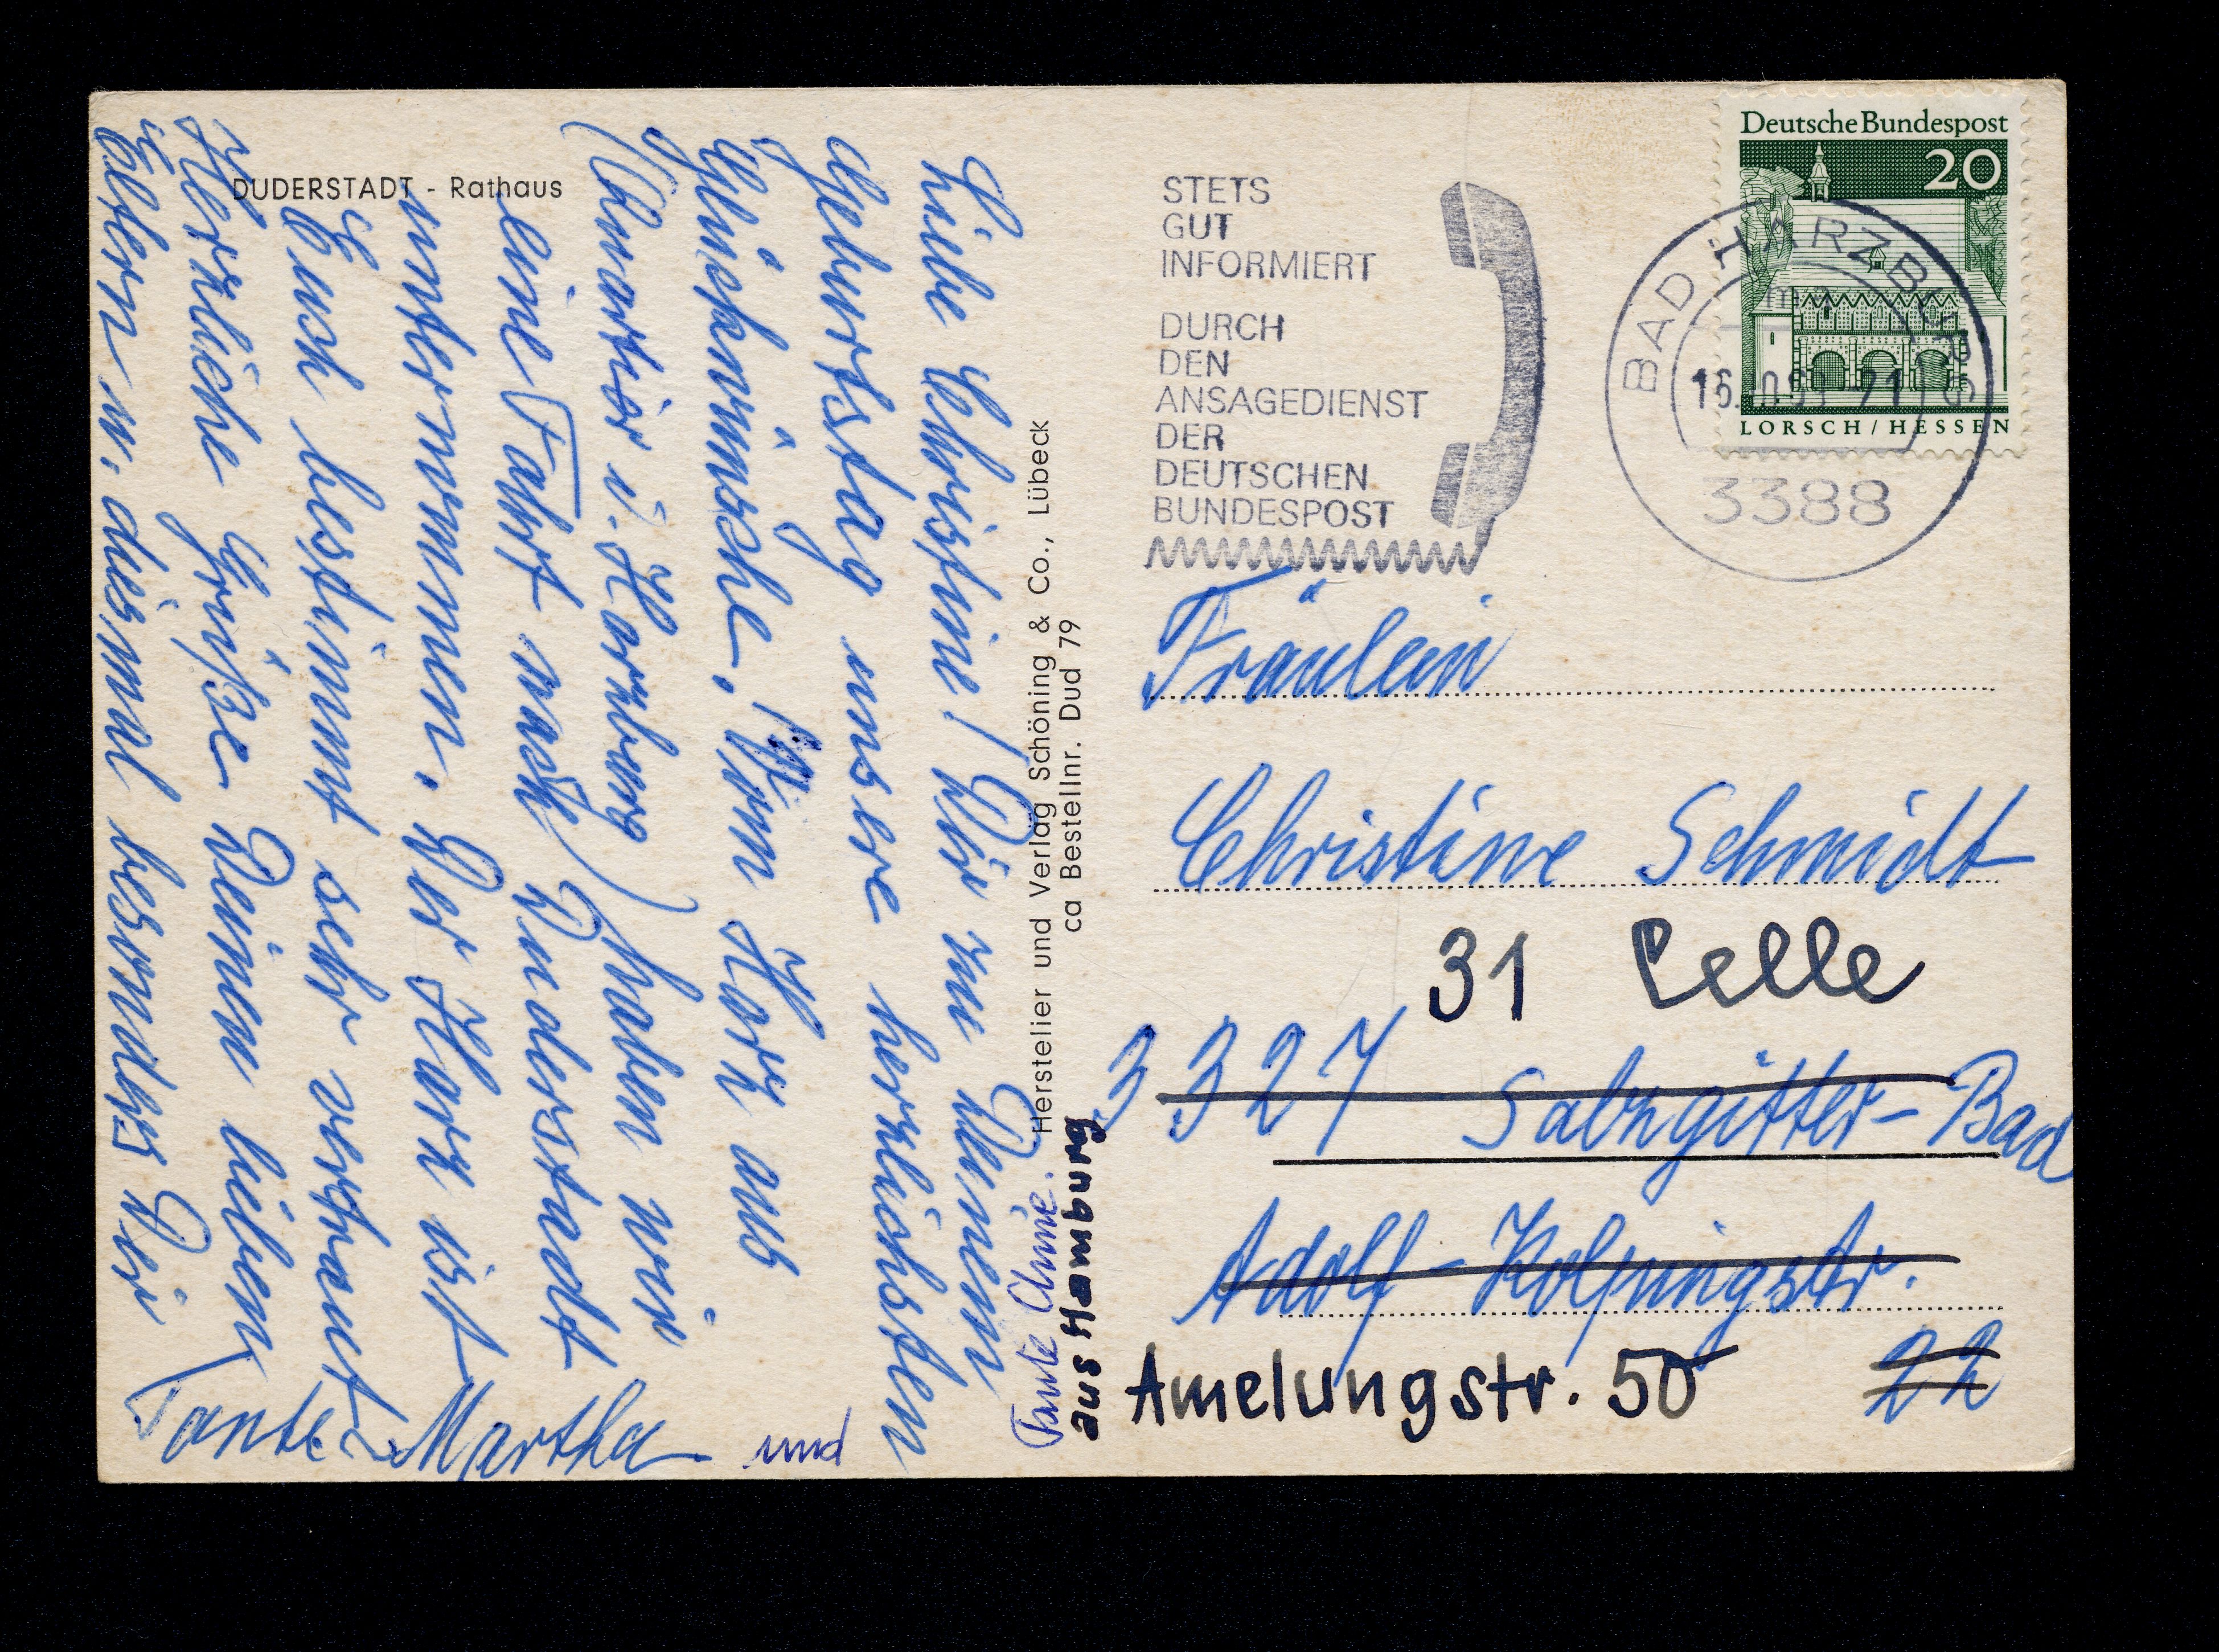 DUDERSTADT - Rathaus
Liebe Christine! Dir zu Deinem
Geburtstag unsere herzlichsten
Glückwünsche. Vom Harz aus
(Quartier i. Harzburg) haben wir
eine Fahrt nach Duderstadt
unternommen. Der Harz ist
Euch bestimmt sehr vertraut
Herzliche Grüße Deinen lieben
Eltern u. diesmal besonders Dir
Tante Martha und
Tante Änne.
aus Hamburg
Hersteller und Verlag Schöning & Co., Lübeck
ca Bestellnr. Dud 79
STETS
GUT
INFORMIERT
DURCH
DEN
ANSAGEDIENST
DER
DEUTSCHEN
BUNDESPOST
Deutsche Bundespost
20
LORSCH / HESSEN
BAD HARZBURG
3388
Fräulein
Christine Schmidt
31 Celle
3327 Salzgitter-Bad
Adolf-Kolpingstr.
22
Amelungstr. 50